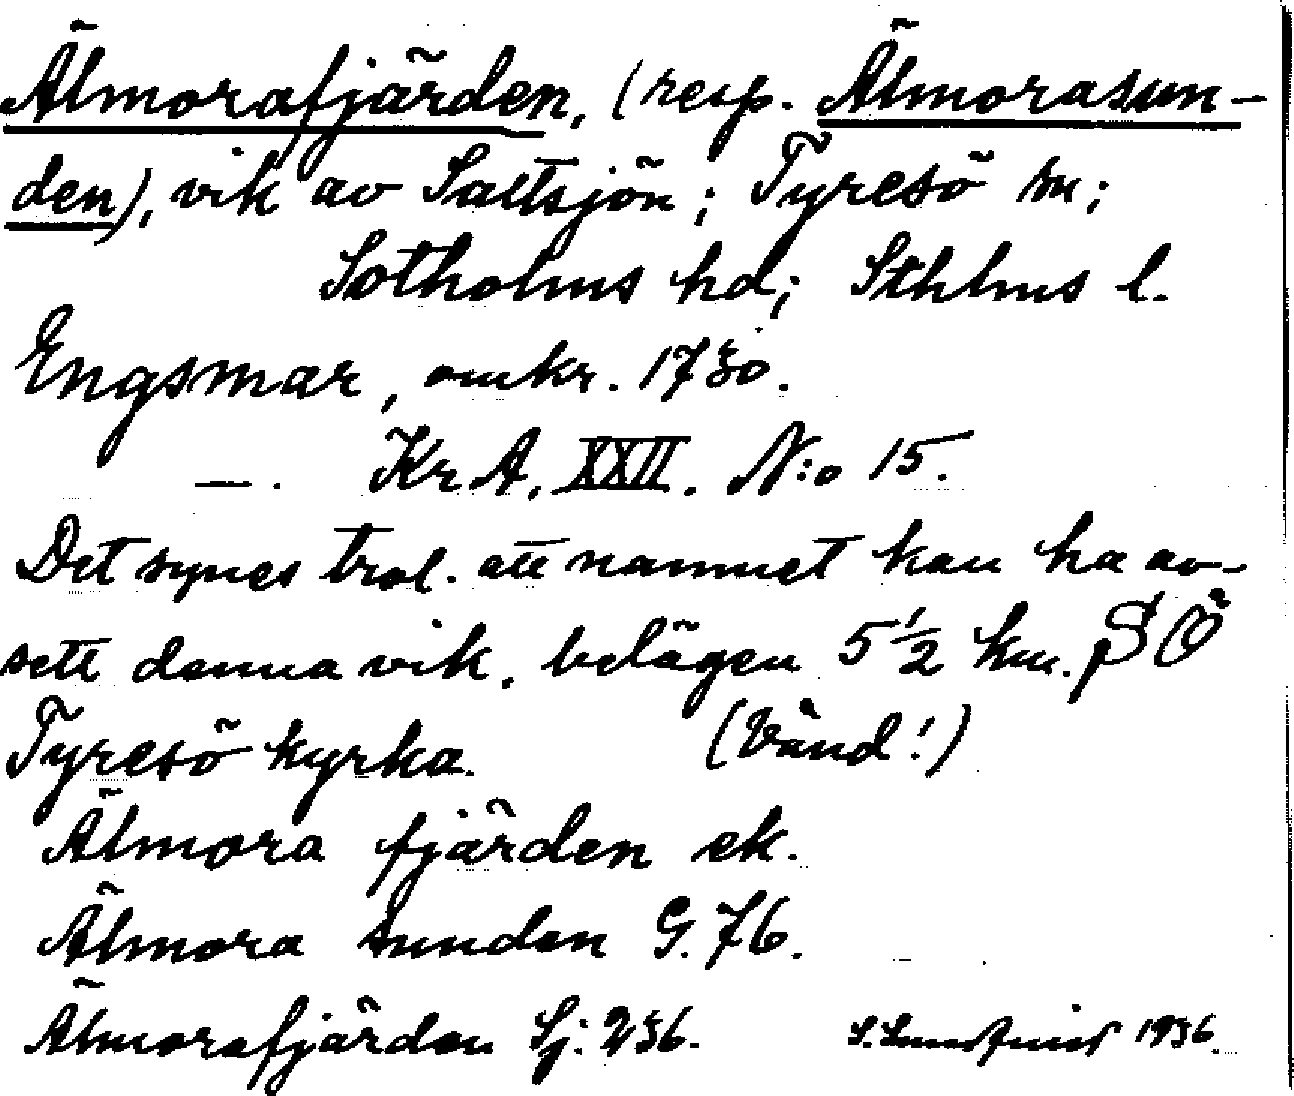 Älmorafjärden, (resp. Älmorasun-
den), vik av Saltsjön; Tyresö sn;
Sotholms hd; Sthlms l.
Engsmar, omkr. 1730.
—. Kr A. XXII. N:o 15.
Det synes trol. att namnet kan ha av-
sett denna vik, belägen 5 1/2 km. SÖ
Tyresö kyrka. (Vänd!)
Älmora fjärden ek.
Älmora sunden G. 76.
Älmorafjärden Sj: 236. S. Lundquist 1936.